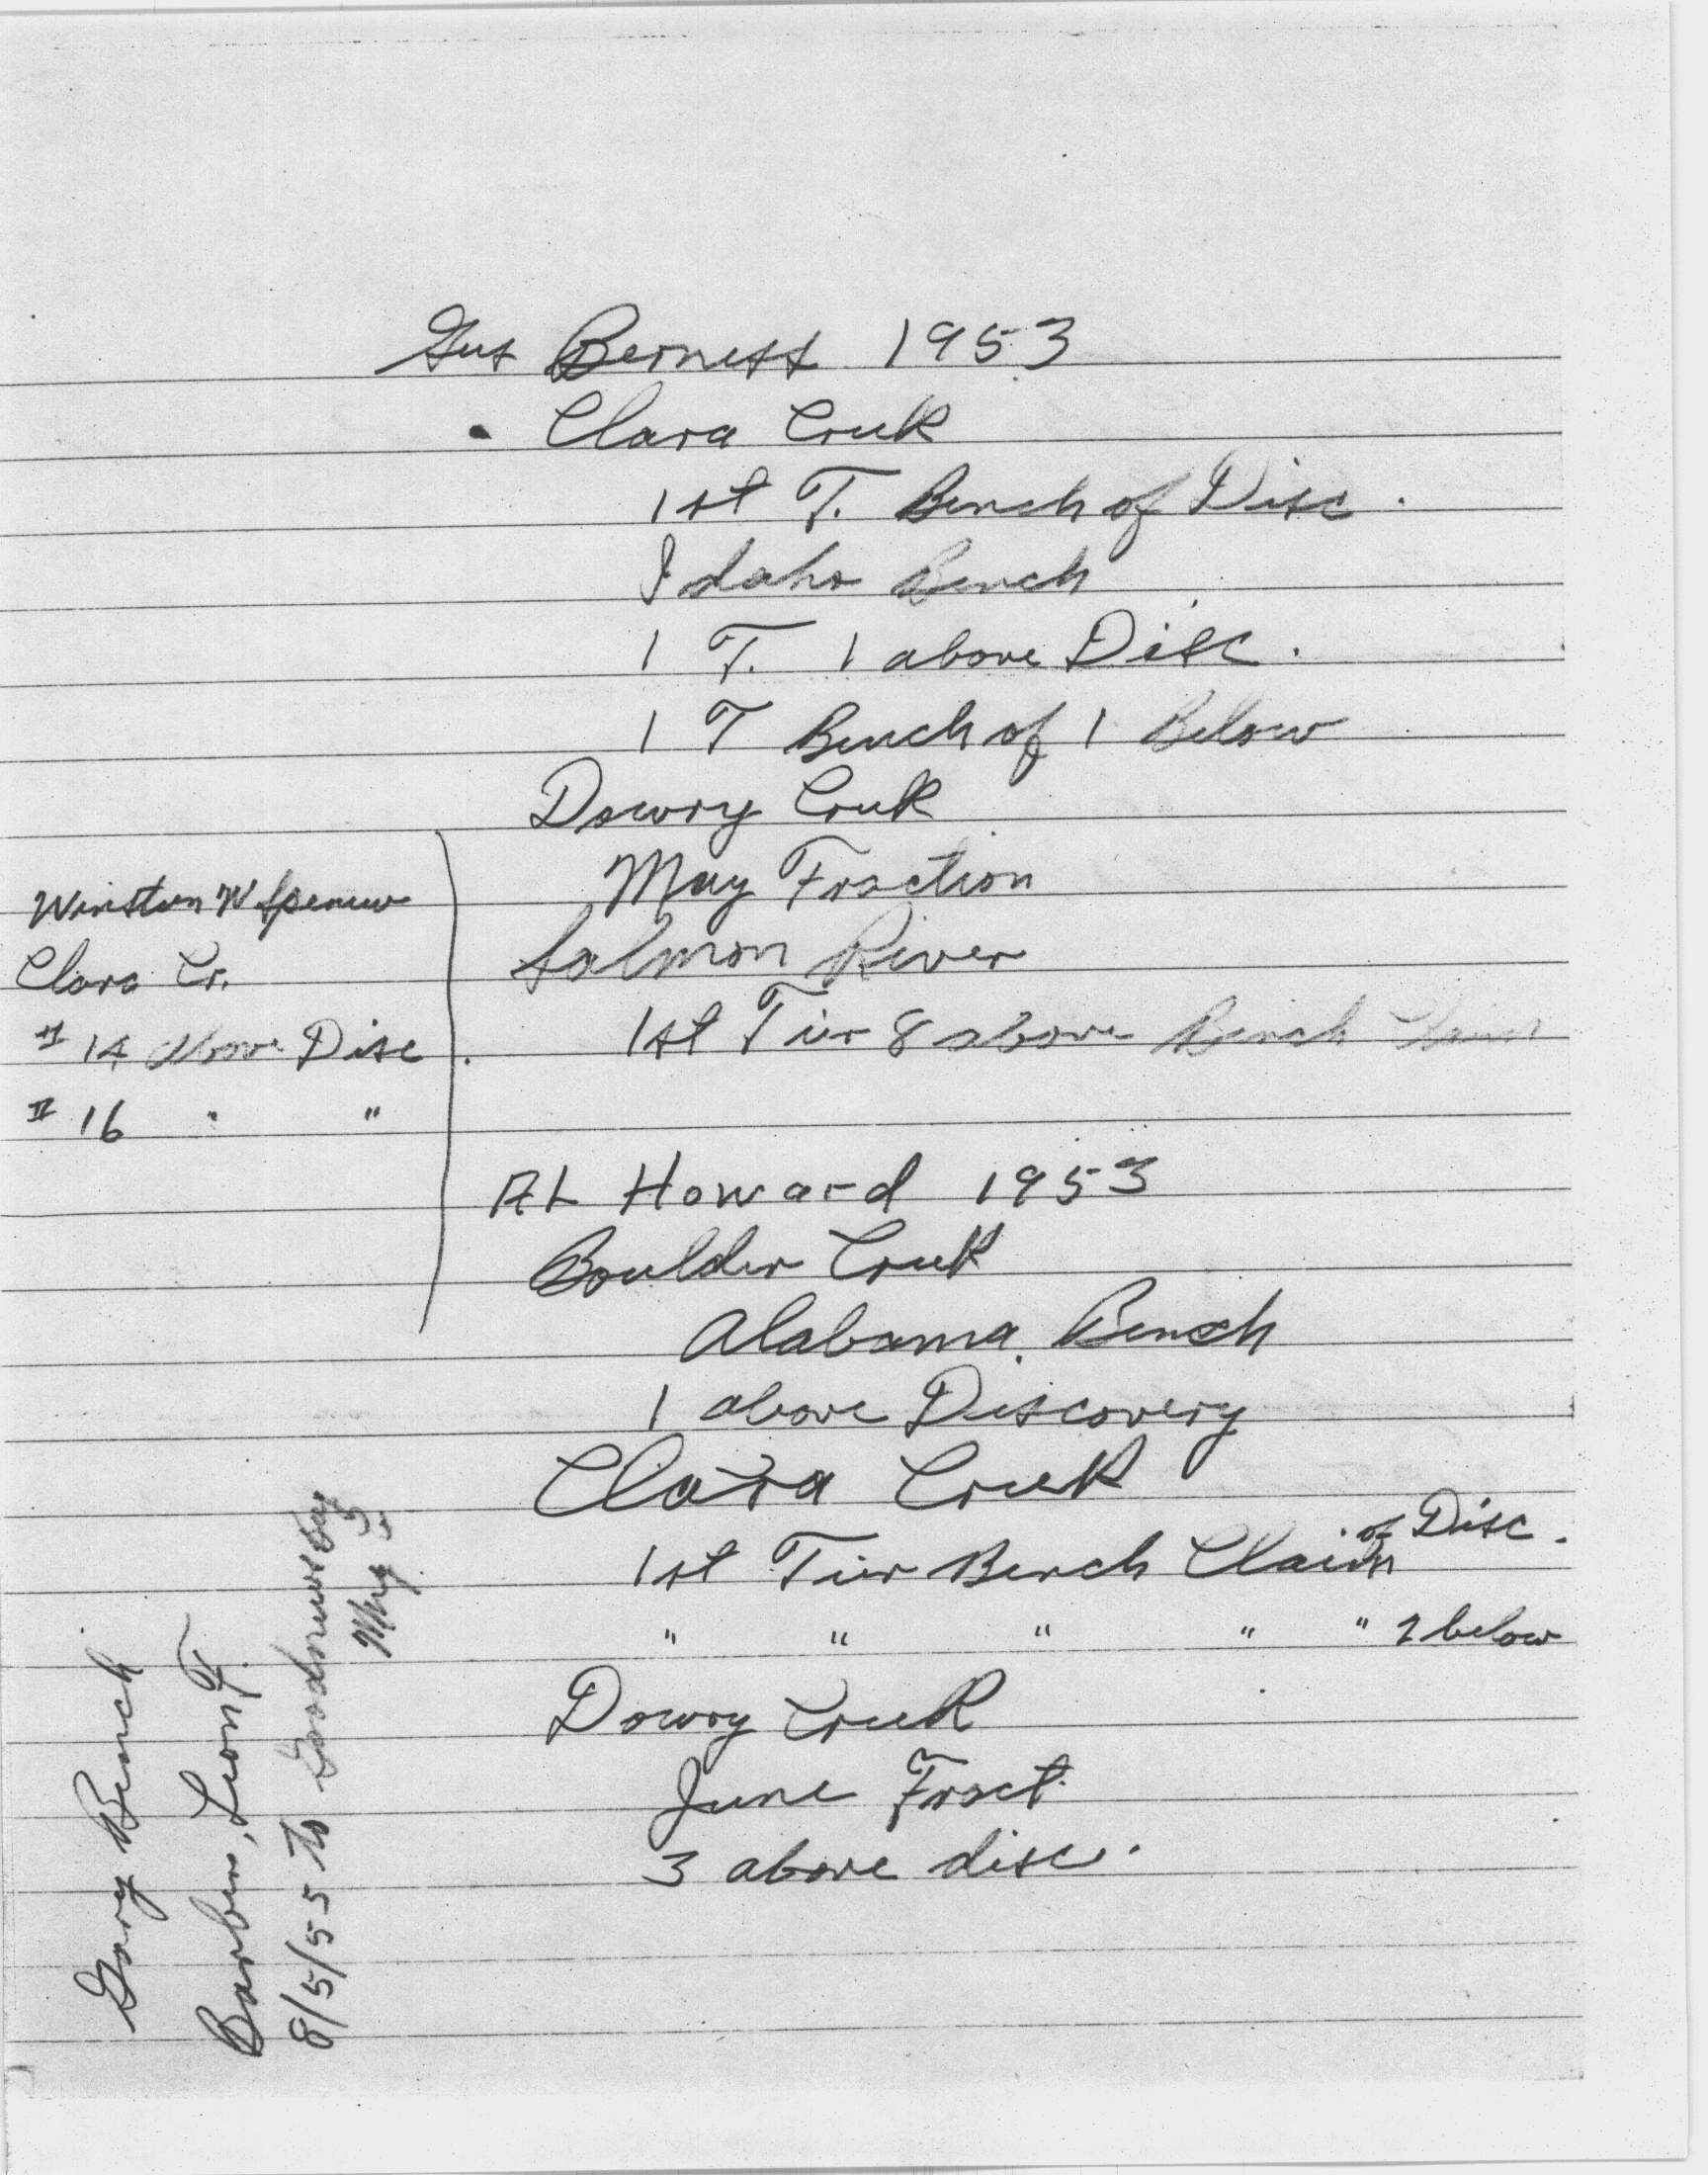 Gus Berness 1953
Clara Creek
1st T. Bench of Disc.
Idaho Bench
1 T. 1 above Disc.
1 T Bench of 1 Below
Dowry Creek
May Fraction
Salmon River
1st Tier 8 above Bench Claim
Winston W Spencer
Clara Cr.
# 14 above Disc.
# 16 " "
AL Howard 1953
Boulder Creek
Alabama Bench
1 above Discovery
Clara Creek
1st Tier Bench Claim of Disc.
" " " " " 2 below
Dowry Creek
June Fract.
3 above disc.
Gary Bench
Barber, Leon F.
8/5/55 to Goodnews Bay